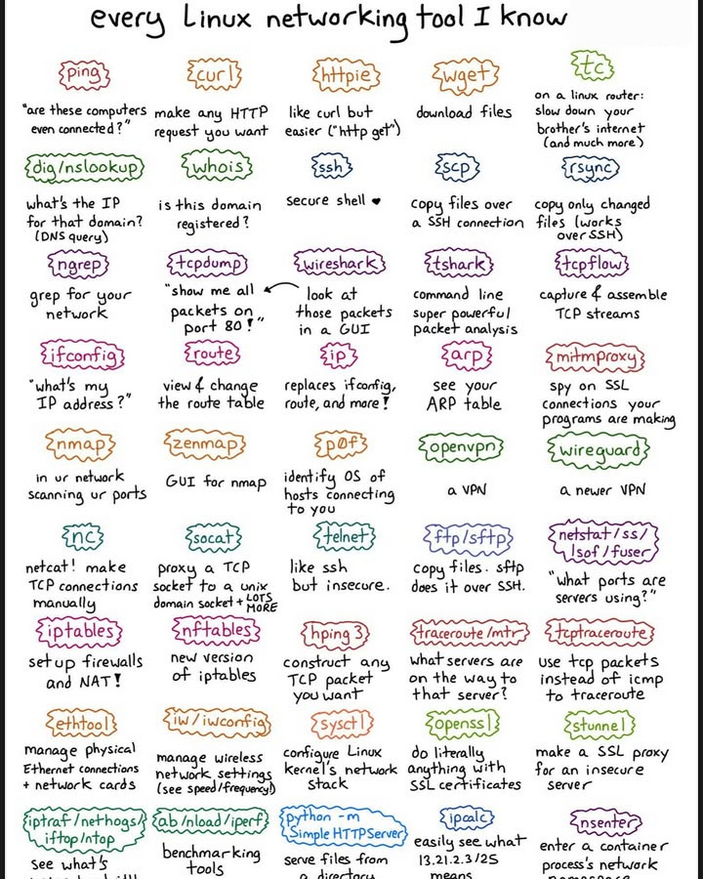 every Linux networking tool I know
ping
"are these computers
even connected?"
curl
make any HTTP
request you want
httpie
like curl but
easier ("http get")
wget
download files
tc
on a linux router:
slow down your
brother's internet
(and much more)
dig/nslookup
what's the IP
for that domain?
(DNS query)
whois
is this domain
registered?
ssh
secure shell ♥
scp
copy files over
a SSH connection
rsync
copy only changed
files (works
over SSH)
ngrep
grep for your
network
tcpdump
"show me all
packets on
port 80!"
wireshark
look at
those packets
in a GUI
tshark
command line
super powerful
packet analysis
tcpflow
capture & assemble
TCP streams
ifconfig
"what's my
IP address?"
route
view & change
the route table
ip
replaces ifconfig,
route, and more!
arp
see your
ARP table
mitmproxy
spy on SSL
connections your
programs are making
nmap
in ur network
scanning ur ports
zenmap
GUI for nmap
p0f
identify OS of
hosts connecting
to you
openvpn
a VPN
wireguard
a newer VPN
nc
netcat! make
TCP connections
manually
socat
proxy a TCP
socket to a unix
domain socket + LOTS
MORE
telnet
like ssh
but insecure.
ftp/sftp
copy files. sftp
does it over SSH.
netstat/ss/
lsof/fuser
"what ports are
servers using?"
iptables
set up firewalls
and NAT!
nftables
new version
of iptables
hping3
construct any
TCP packet
you want
traceroute/mtr
what servers are
on the way to
that server?
tcptraceroute
use tcp packets
instead of icmp
to traceroute
ethtool
manage physical
Ethernet connections
+ network cards
iw/iwconfig
manage wireless
network settings
(see speed/frequency!)
sysctl
configure Linux
kernel's network
stack
openssl
do literally
anything with
SSL certificates
stunnel
make a SSL proxy
for an insecure
server
iptraf/nethogs/
iftop/ntop
see what's
ab/nload/iperf
benchmarking
tools
python -m
SimpleHTTPServer
serve files from
a directory
ipcalc
easily see what
13.21.2.3/25
means
nsenter
enter a container
process's network